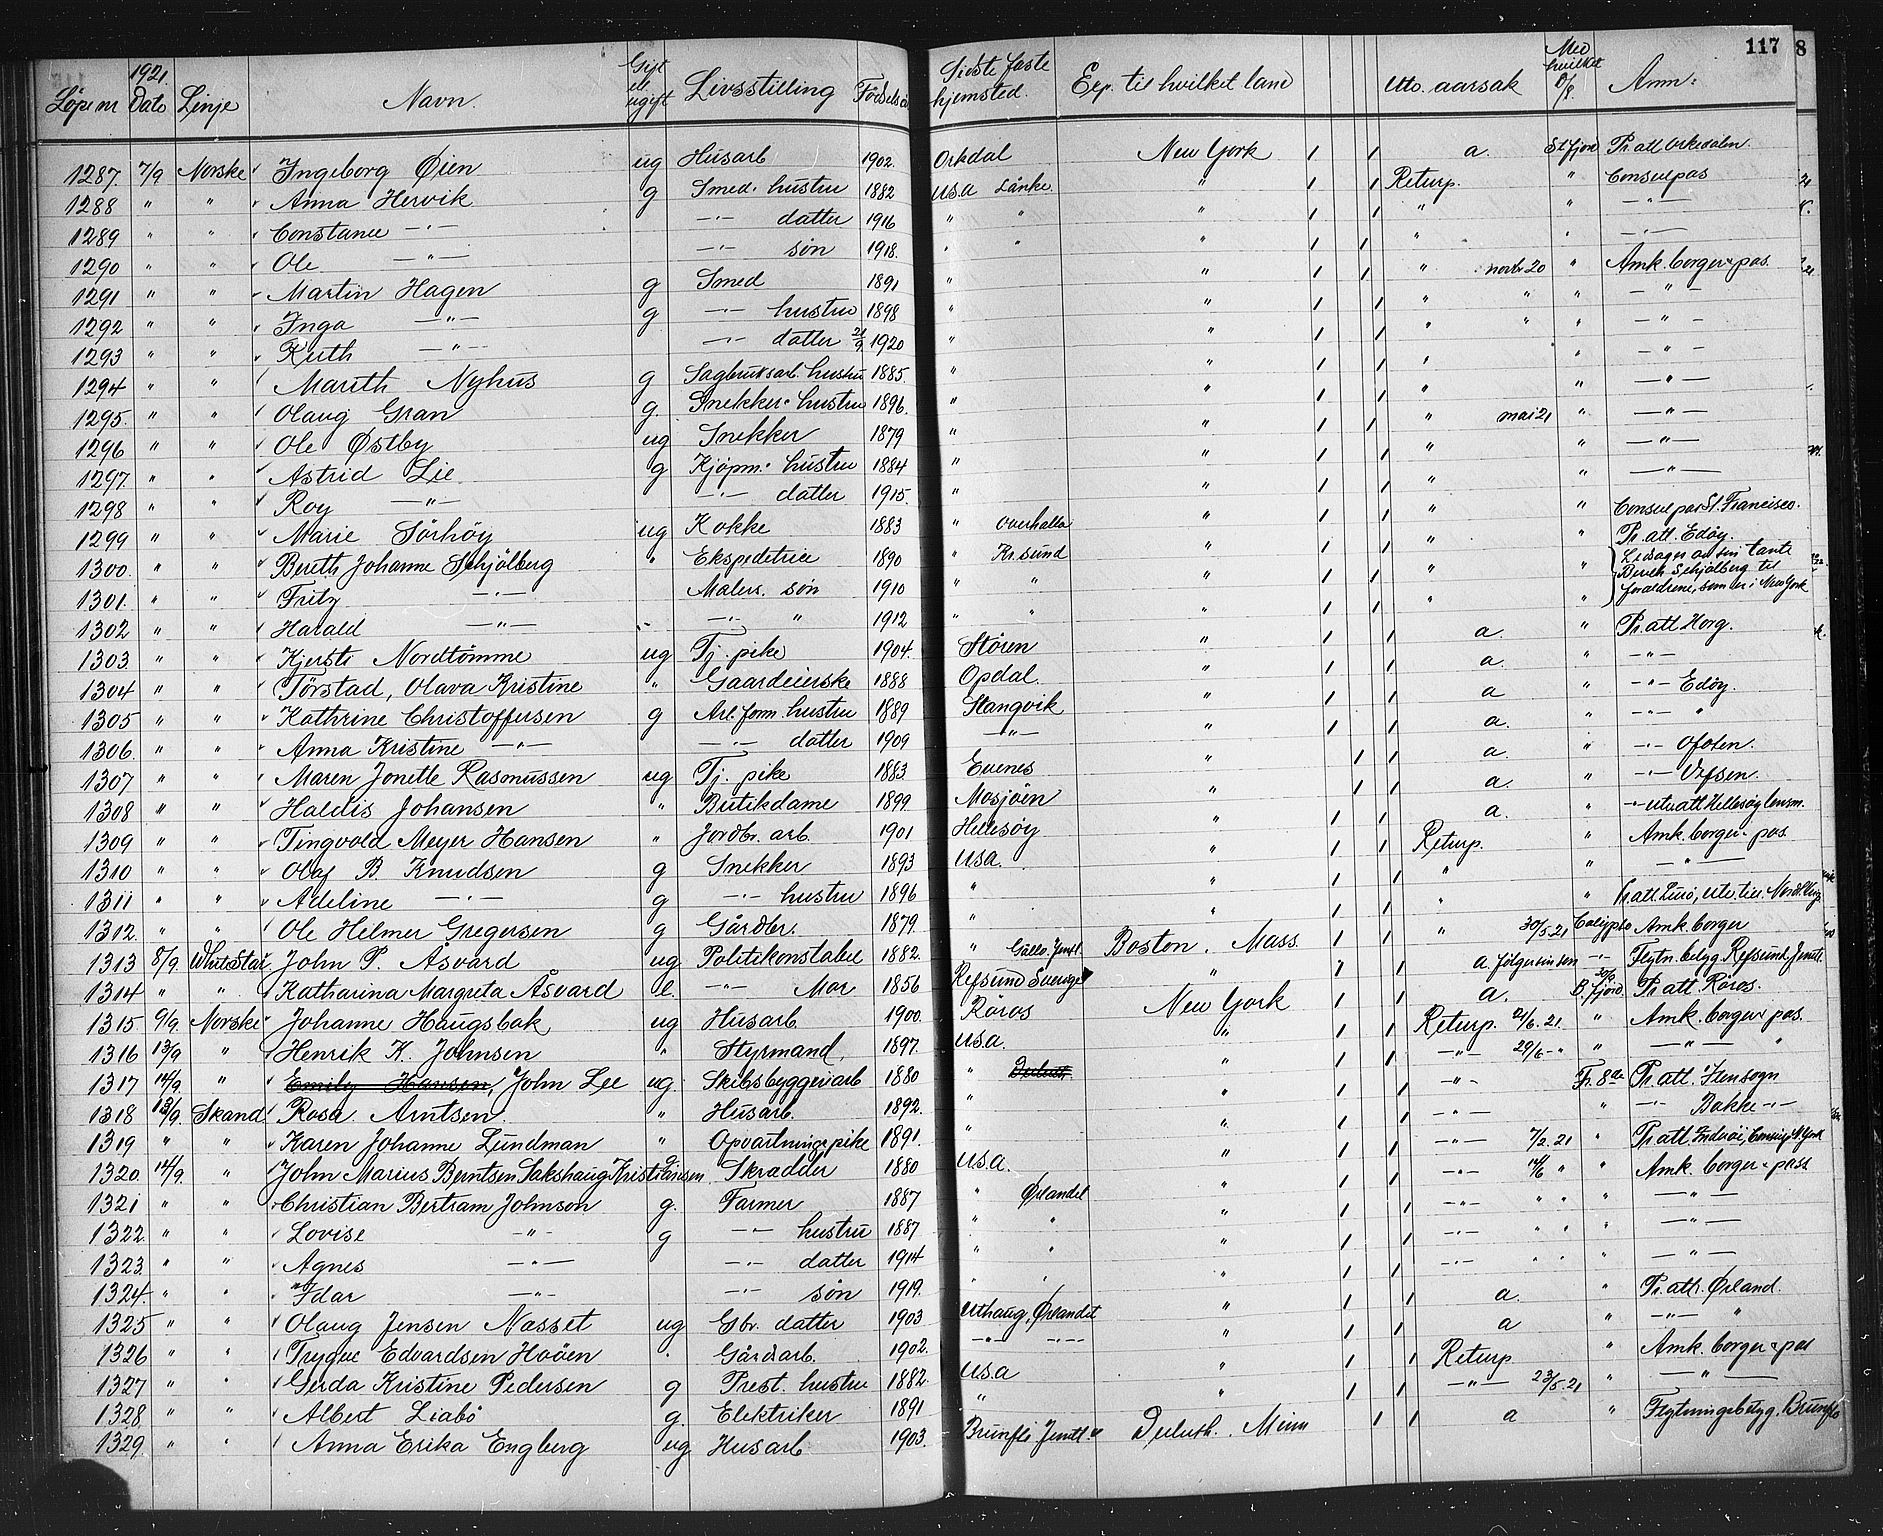 117 8
Löpenr 1921 Dato Linje Navn. Gift el ugift Livsstilling Födsels Sidste faste hjemsted. Exp. til hvilket land Utv. aarsak Med hvilket D/S. Anm:
1287. 7/9 Norske Ingeborg Öien ug Husarb 1902. Orkdal New York 1 1 a. St.fjord Pr. att. Orkedalen.
1288 " " Anna Hervik g Smed. hustru 1882 U.S.A Lånke. " 1 1 Returp. " Consulpas
1289 " " Constance -"- -"- datter 1916 " " " 1 1 " " -"-
1290 " " Ole -"- -"- sön 1918. " " " 1 1 " " -"-
1291 " " Martin Hagen g Smed 1891 " " 1 1 " novbr 20 " Amk. borger. pas.
1292 " " Inga -"- g -"- hustru 1898 " " 1 1 " " " -"-
1293 " " Ruth -"- -"- datter 21/9 1920 " " 1 1 " " " -"-
1294 " " Mareth Nyhus g Sagbruksarb. hustru 1885. " " 1 1 " " -"-
1295. " " Olaug Gran g. Snekker. hustru 1896. " " 1 1 " " -"-
1296 " " Ole Östby ug Snekker 1879 " " 1 1 " mai 21 " -"-
1297. " " Astrid Lie g Kjöpm. hustru 1884 " " 1 1 " " -"-
1298 " " Roy -"- -"- datter 1915. " " 1 1 " " -"-
1299 " " Marie Sörhöy ug Kokke 1883 " Overhalla " 1 1 " " Consulpas St. Francisco.
1300. " " Bereth Johanne Schjölberg " Ekspeditrice 1890 " Kr.sund " 1 1 " " Pr. att. Edöy.
1301. " " Fritz -"- Malers. sön 1910 " " " 1 1 " " Ledsages av sin tante Bereth Schjölberg til
1302 " " Harald -"- -"- " 1912 " " " 1 1 " " foraldrene, som er i New York
1303 " " Kjersti Nordtömme ug Tj. pike 1904. Stören " 1 1 a. " Pr. att Horg.
1304 " " Törstad, Olava Kristine " Gaardeierske 1888 Opdal. " 1 1 a. " -"-
1305 " " Kathrine Christoffersen g Arb. form. hustru 1889 Stangvik " 1 1 a " -"- Edöy.
1306. " " Anna Kristine -"- -"- datter 1909 -"- " 1 1 a. " -"- "
1307 " " Maren Jonette Rasmussen ug Tj. pike 1883 Evenes " 1 1 a. " -"- Ofoten.
1308 " " Haldis Johansen " Butikdame 1899. Mosjöen " 1 1 a. " -"- Vefsen.
1309 " " Tingvold Meyer Hansen " Jordbr. arb. 1901 Hellesöy " 1 1 a. " -"- utv. att Hellesöy lensm.
1310 " " Olaf B. Knudsen g Snekker 1893 U.S.A. " 1 1 Returp. " Amk. borger. pas
1311 " " Adeline -"- g -"- hustru 1896 " " 1 1 " " -"-
1312. " " Ole Helmer Gregersen g Gårdbr. 1879. " " 1 1 "
1313 8/9. White Star John P. Åsvard ug Politikonstabel 1882. " Gällö. Jemtl. Boston. Mass. 1 1 " 30/5.21 Calypso Amk. borger
1314 " " Katharina Margreta Åsvard e. -"- Mor 1856 Refsund Sverige " 1 1 a. følger sönnen -"- Flytn. betyg Refsund Jemtl.
1315 9/9. Norske Johanne Haugsbak ug Husarb. 1900. Röros New York 1 1 a. B.fjord Pr. att. Röros.
1316 13/9 " Henrik K. Johnsen " Styrmand. 1897. U.S.A. " 1 1 Returp. 21/6.21 " Amk. borger pas.
1317 14/9 " Emily Hansen, John Lee ug. Skibsbyggeriarb 1880 " Duluth. " 1 1 -"- 29/6 -"- " -"-
1318 13/9 Skand. Rosa Arntsen. " Husarb. 1892. " " 1 1 -"- Fr. 8de Pr. att. Stensogn
1319 " " Karen Johanne Lundman " Opvartningspike 1891. " " 1 1 -"- " -"- Bakke -"-
1320. 14/9. " John Marius Berntsen Sakshaug Kristiansen Skrädder 1880 U.S.A. " 1 1 -"- 7/2.21 " Pr. att. Inderöi, Consulp. N. York
1321 " " Christian Bertram Johnson g. Farmer 1887 " Örlandet " 1 1 -"- 14/6 " " Amk. borger. pass
1322. " " Lovise -"- g -"- hustru 1887 " " " 1 1 -"- " " " -"-
1323. " " Agnes -"- -"- datter 1914 " " " 1 1 -"- " " " -"-
1324. " " Idar -"- -"- sön 1919. " " " 1 1 -"- " " -"-
1325 " " Olaug Jensen Nasset ug Gbr. datter 1903 Uthaug, Örlandet " 1 1 a. " Pr. att. Örland.
1326 " " Trygve Edvardsen Hoöen " Gårdsarb. 1902. -"- -"- " 1 1 a " -"- "
1327 " " Gerda Kristine Pedersen g Prest. hustru 1882. U.S.A " 1 1 Returp. " Amk. borger. pas
1328 " " Albert Liabö g. Elektriker 1891 " " 1 1 -"- 23/5.21 " -"-
1329. " " Anna Erika Engberg ug Husarb. 1903. Brunflo Jemtl. Duluth. Minn 1 1 a " Flytningsbetyg. Brunflo